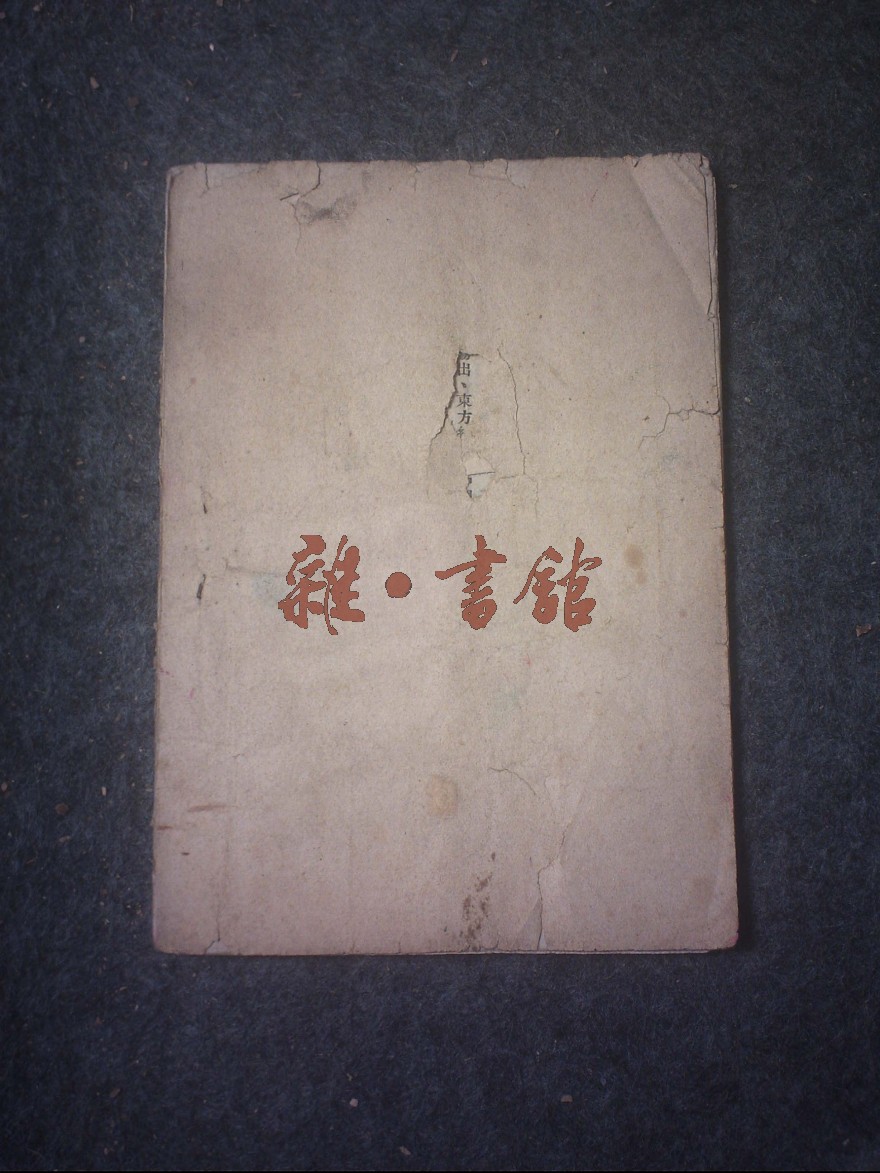 出、東方
雜·書館